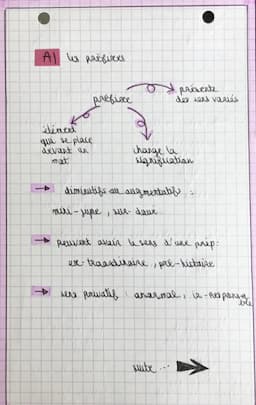 A) les préfixes
présente
des sens variés
préfixe
élément
qui se place
devant un
mot
change la
signification
→ diminutifs ou augmentatifs :
mini-jupe, sur-doué
→ peuvent avoir le sens d'une prép :
ex-traordinaire, pré-histoire
→ sens privatif : anormal, ir-responsa
ble
suite ...